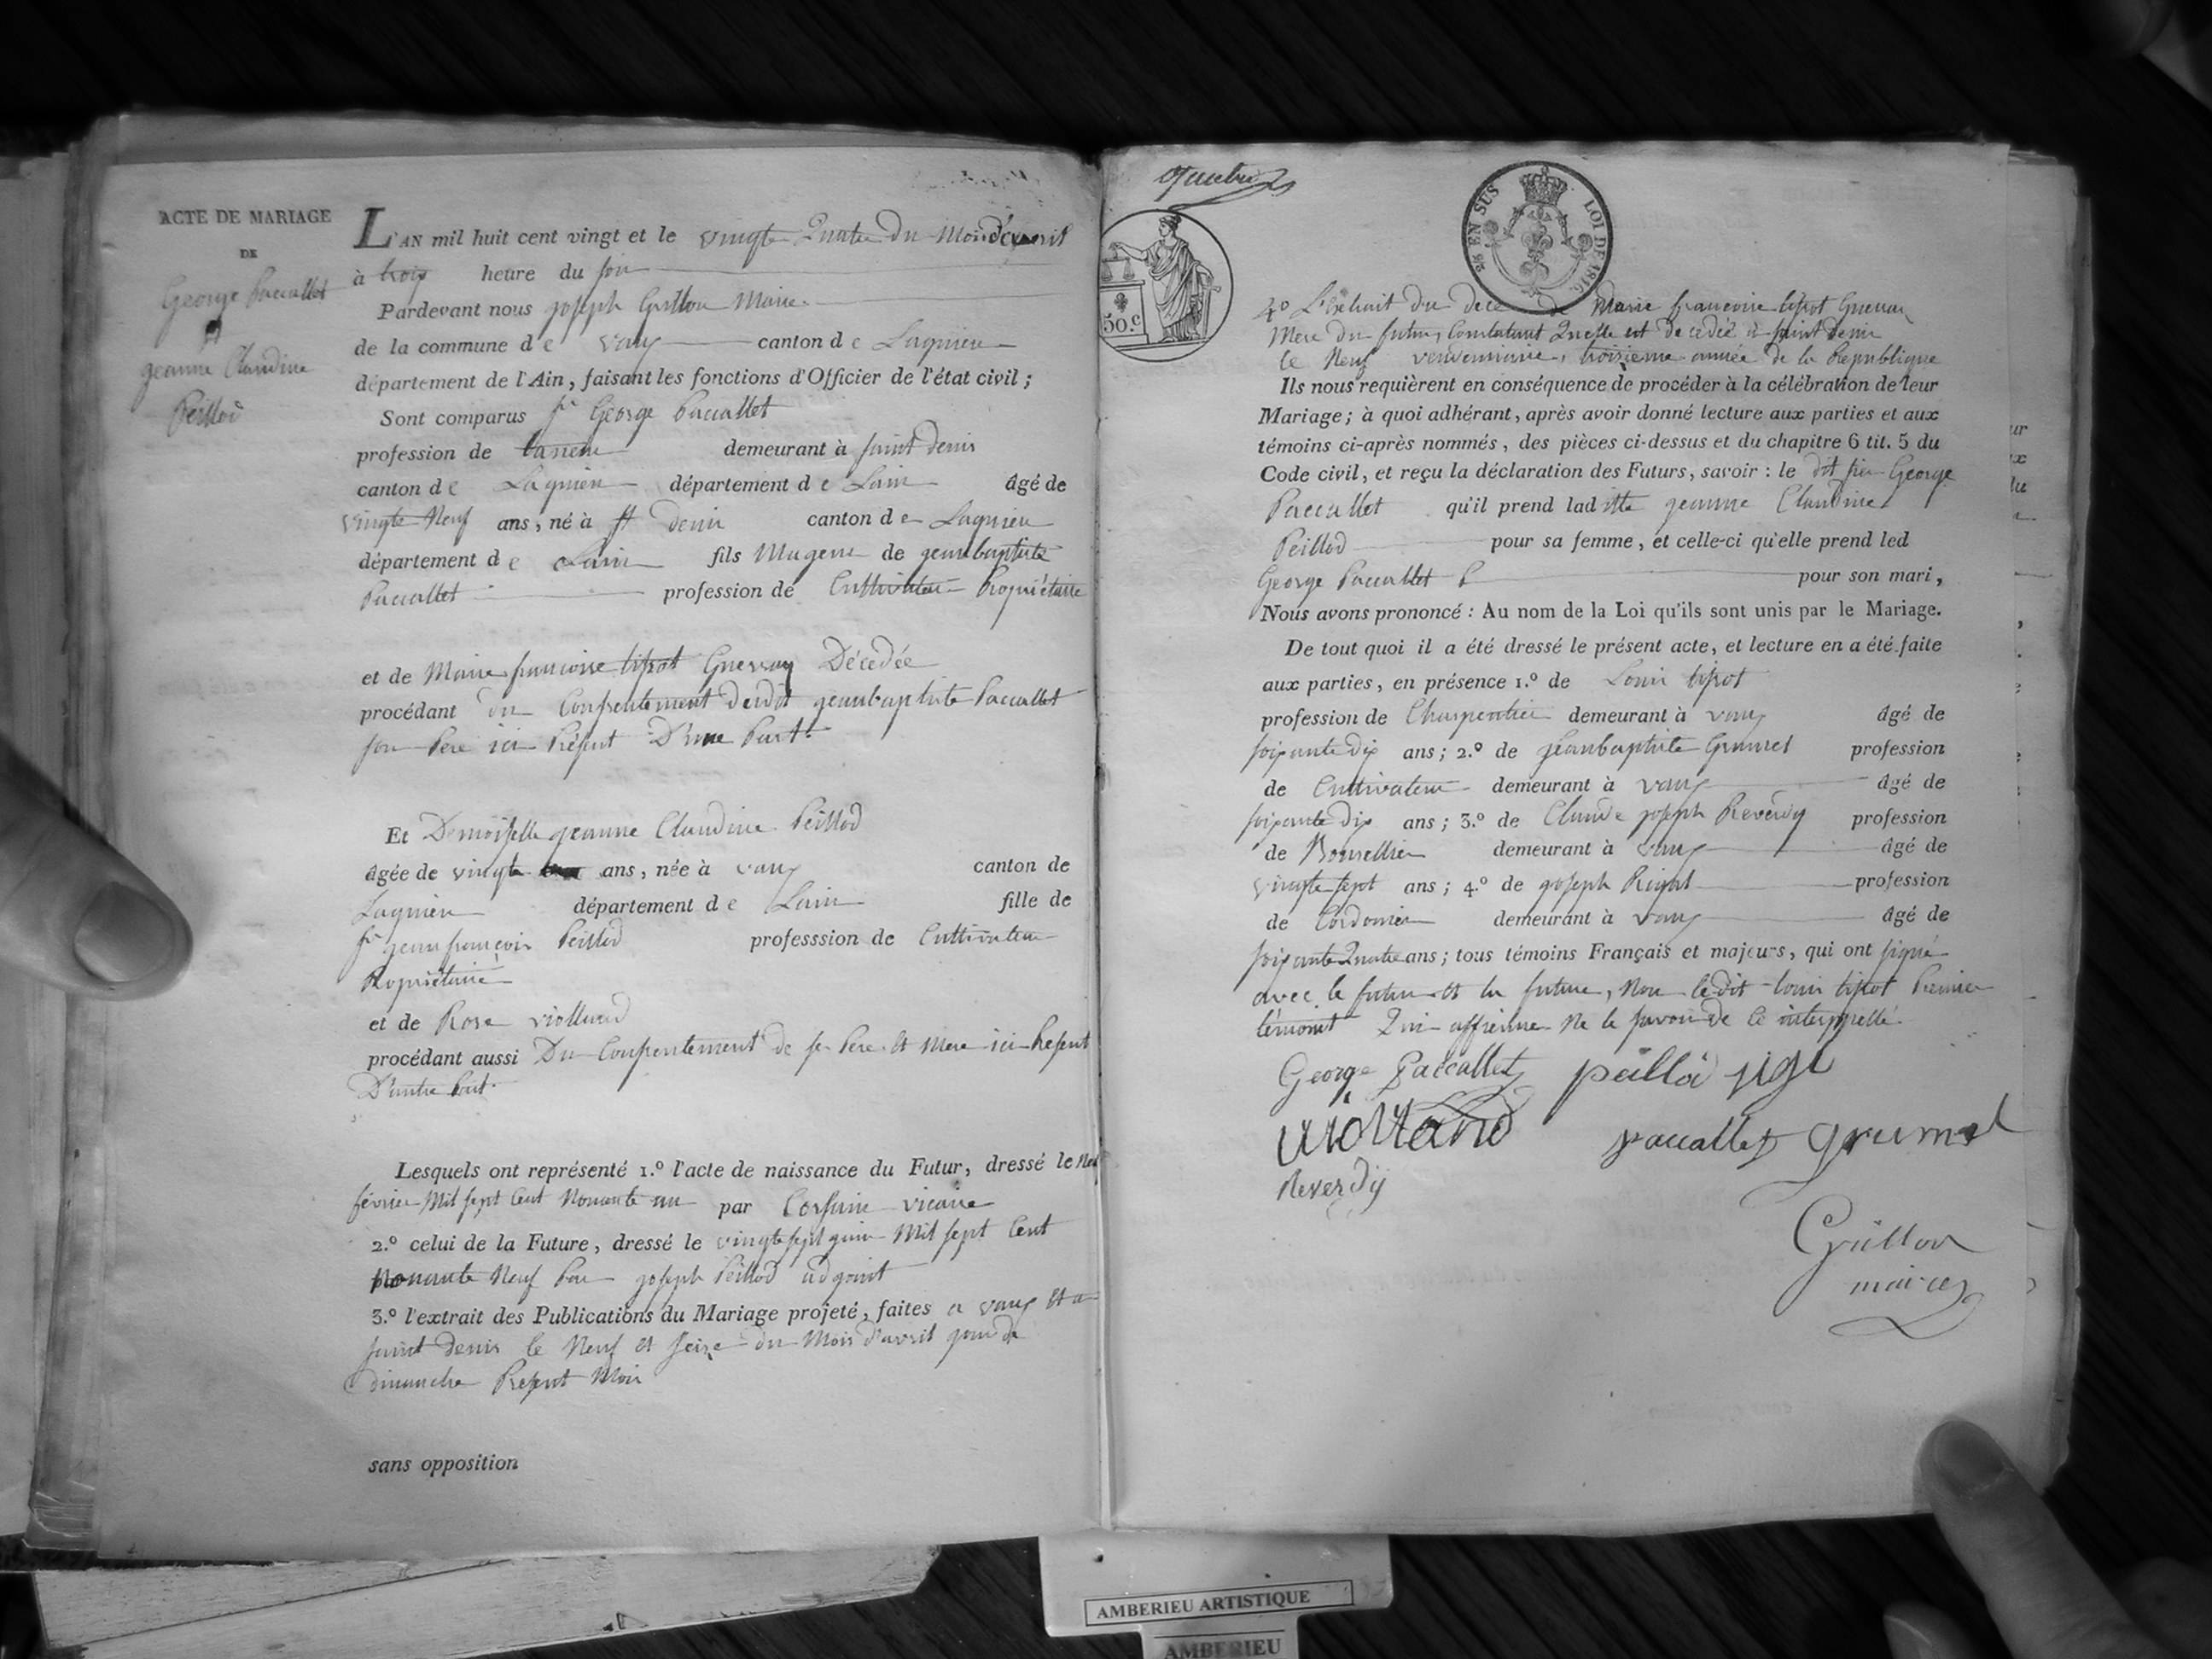 ACTE DE MARIAGE
DE
George Paccallet
et
jeanne Claudine
Peillod
L'AN mil huit cent vingt et le vingte Quatre du Mois d'avril
à trois heure du soir
Pardevant nous joseph Grillon Maire
de la commune de vaux canton de Lagnieu
département de l'Ain, faisant les fonctions d'Officier de l'état civil;
Sont comparus sr George Paccallet
profession de demeurant à saint denis
canton de Lagnieu département de Lain âgé de
vingte Neuf ans, né à st denis canton de Lagnieu
département de Lain fils Mageur de jeanbaptiste
Paccallet profession de Cultivateur Propriétaire
et de Marie francoise tissot Guerray Décedée
procédant du Consentement dudit jeanbaptiste Paccallet
son Pere ici Présent D'une Part.
Et Demoiselle jeanne Claudine Peillod
âgée de vingte ans, née à vaux canton de
Lagnieu département de Lain fille de
sr jeanfrançois Peillod professsion de Cultivateur
Propriétaire
et de Rose violland
procédant aussi Du Consentement de ses Pere et Mere ici Présent
D'autre Part.
Lesquels ont représenté 1.º l'acte de naissance du Futur, dressé le Neuf
février Mil sept Cent Nonante un par vicaire
2.º celui de la Future, dressé le vingtesept juin Mil sept Cent
Nonante Neuf Par joseph Peillod adjoint
3.º l'extrait des Publications du Mariage projeté, faites a vaux et a
saint denis le Neuf et seize du Mois d'avril jour de
dimanche Présent Mois
sans opposition
50.c
25 EN SUS LOI DE 1816
4º L'extrait du décè de Marie francoise tissot Guerray
Mere du futur, Constatant Quelle est decedée à saint denis
le Neuf vendemiaire, troisieme année de la Republique
Ils nous requièrent en conséquence de procéder à la célébration de leur
Mariage; à quoi adhérant, après avoir donné lecture aux parties et aux
témoins ci-après nommés, des pièces ci-dessus et du chapitre 6 tit. 5 du
Code civil, et reçu la déclaration des Futurs, savoir: le dit sieur George
Paccallet qu'il prend laditte jeanne Claudine
Peillod pour sa femme, et celle-ci qu'elle prend led
George Paccallet pour son mari,
Nous avons prononcé: Au nom de la Loi qu'ils sont unis par le Mariage.
De tout quoi il a été dressé le présent acte, et lecture en a été faite
aux parties, en présence 1.º de Louis tissot
profession de Charpentier demeurant à vaux âgé de
soixante dix ans; 2.º de jeanbaptiste Grumel profession
de Cultivateur demeurant à vaux âgé de
soixante dix ans; 3.º de Claude joseph Reverdy profession
de Bourellier demeurant à vaux âgé de
vingte sept ans; 4.º de joseph Rigat profession
de Cordonier demeurant à vaux âgé de
soixante Quatre ans; tous témoins Français et majeurs, qui ont signé
avec le futur et la future, Non ledit Louis tissot Premier
témoint Qui affirme Ne le savoir de ce interppellé
George Paccallet peillod
violland paccallet grumel
Reverdy
Grillon
maire
AMBERIEU ARTISTIQUE
AMBERIEU